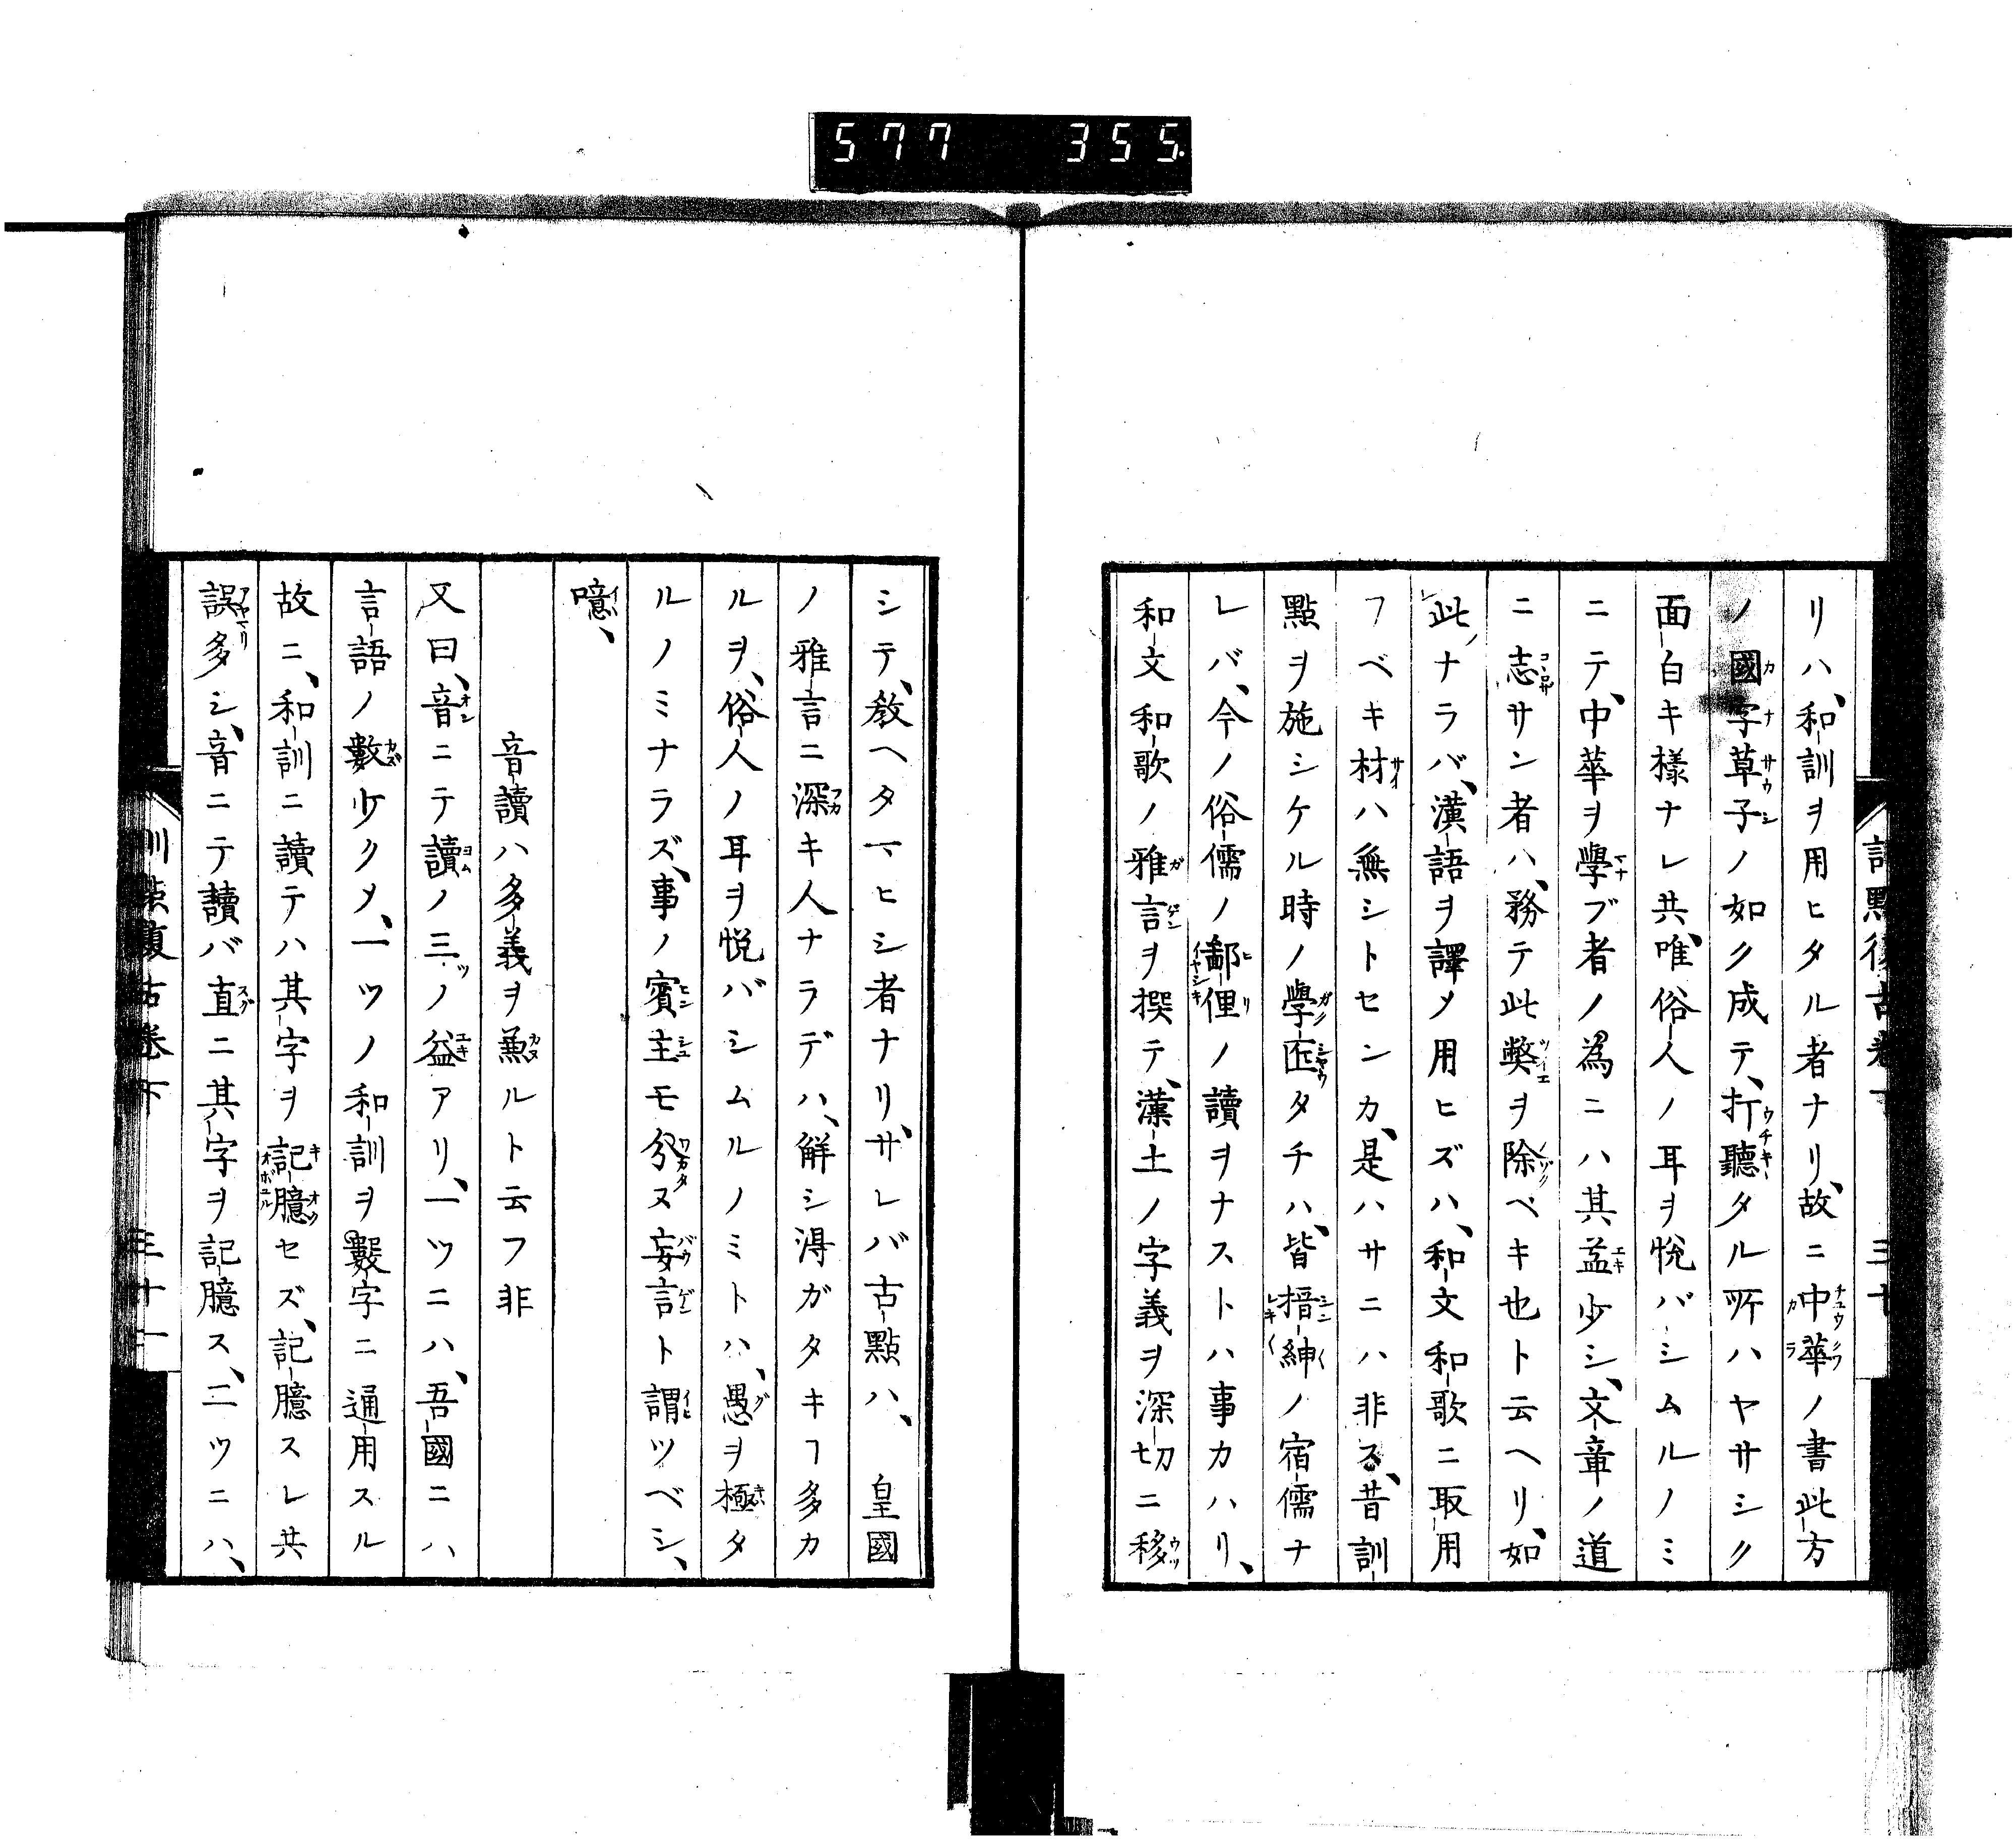 577 355
リハ、和訓ヲ用ヒタル者ナリ、故ニ中華ノ書此方
ノ國字草子ノ如ク成テ、打聽タル所ハヤサシク
面白キ樣ナレ共、唯俗人ノ耳ヲ悅バシムルノミ
ニテ、中華ヲ學ブ者ノ爲ニハ其益少シ、文章ノ道
ニ志サン者ハ、務テ此弊ヲ除ベキ也ト云ヘリ、如
此ナラバ、漢語ヲ譯メ用ヒズハ、和文和歌ニ取用
フベキ材ハ無シトセンカ、是ハサニハ非ズ、昔訓
點ヲ施シケル時ノ學匠タチハ、皆搢紳ノ宿儒ナ
レバ、今ノ俗儒ノ鄙俚ノ讀ヲナストハ事カハリ、
和文和歌ノ雅言ヲ撰テ、漢土ノ字義ヲ深切ニ移
シテ、敎ヘタマヒシ者ナリ、サレバ古點ハ、 皇國
ノ雅言ニ深キ人ナラデハ、解シ得ガタキヿ多カ
ルヲ、俗人ノ耳ヲ悅バシムルノミトハ、愚ヲ極タ
ルノミナラズ、事ノ賓主モ分ヌ妄言ト謂ツベシ、
噫、
音讀ハ多義ヲ兼ルト云フ非
又曰、音ニテ讀ノ三ノ益アリ、一ツニハ、吾國ニハ
言語ノ數少クメ、一ツノ和訓ヲ數字ニ通用スル
故ニ、和訓ニ讀テハ其字ヲ記臆セズ、記臆スレ共
誤多シ、音ニテ讀バ直ニ其字ヲ記臆ス、二ツニハ、
訓點復古卷下 三十一